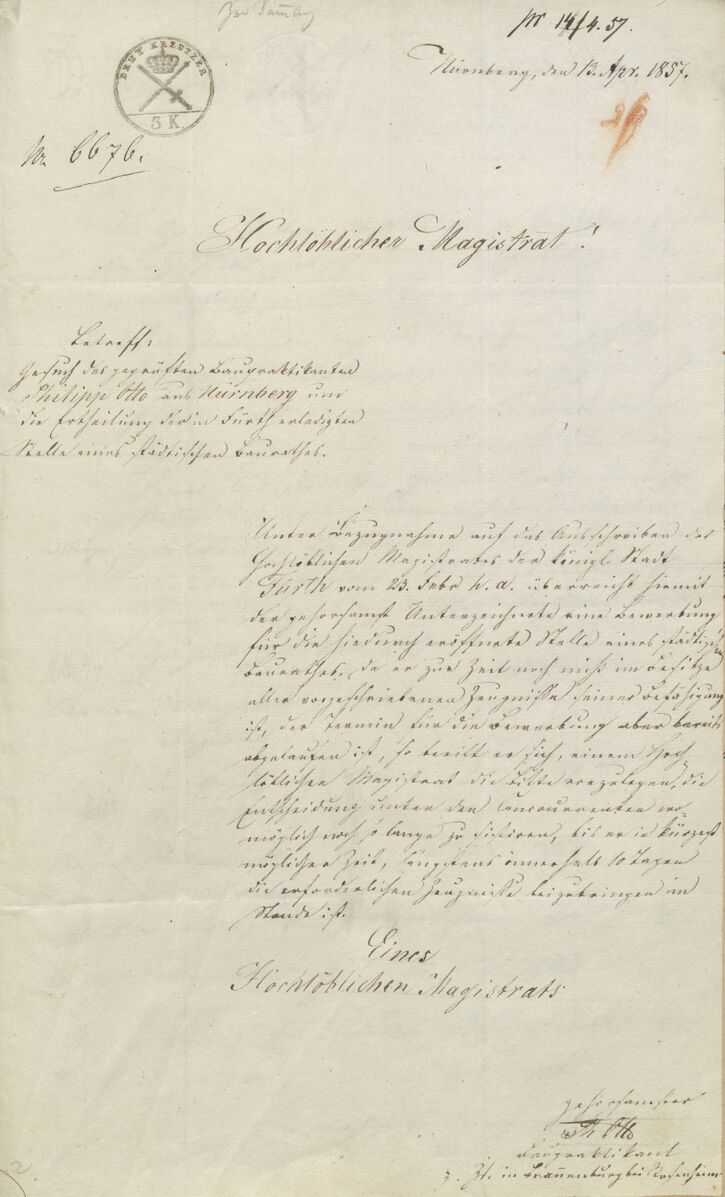 Zur Sammlg
pr 14/4. 57.
Nürnberg, den 13. Apr. 1857.
DREY KREUTZER
3 K.
Nr. 6676.
Hochlöblicher Magistrat!
Betreff:
Gesuch des geprüften Baupraktikanten
Philipp Otto aus Nürnberg um
die Ertheilung der in Fürth erledigten
Stelle eines städtischen Baurathes.
Unter Bezugnahme auf das Ausschreiben des
Hochlöblichen Magistrates der königl. Stadt
Fürth vom 23. Febr. h. a. überreicht hiemit
der gehorsamst Unterzeichnete eine Bewerbung
für die hiedurch eröffnete Stelle eines städtischen
Baurathes. Da er zur Zeit noch nicht im Besitze
aller vorgeschriebenen Zeugnisse seiner Befähigung
ist, der Termin für die Bewerbung aber bereits
abgelaufen ist, so beeilt er sich, einem Hoch-
löblichen Magistrat die Bitte vorzulegen, die
Entscheidung unter den Concurrenten wo
möglich noch so lange zu sistiren, bis er in kürzest
möglicher Zeit, längstens innerhalb 10 Tagen
die erforderlichen Zeugnisse beizubringen im
Stande ist.
Eines
Hochlöblichen Magistrats
gehorsamster
Ph Otto
Baupraktikant
z. Zt. in Brannenburg bei Rosenheim
2